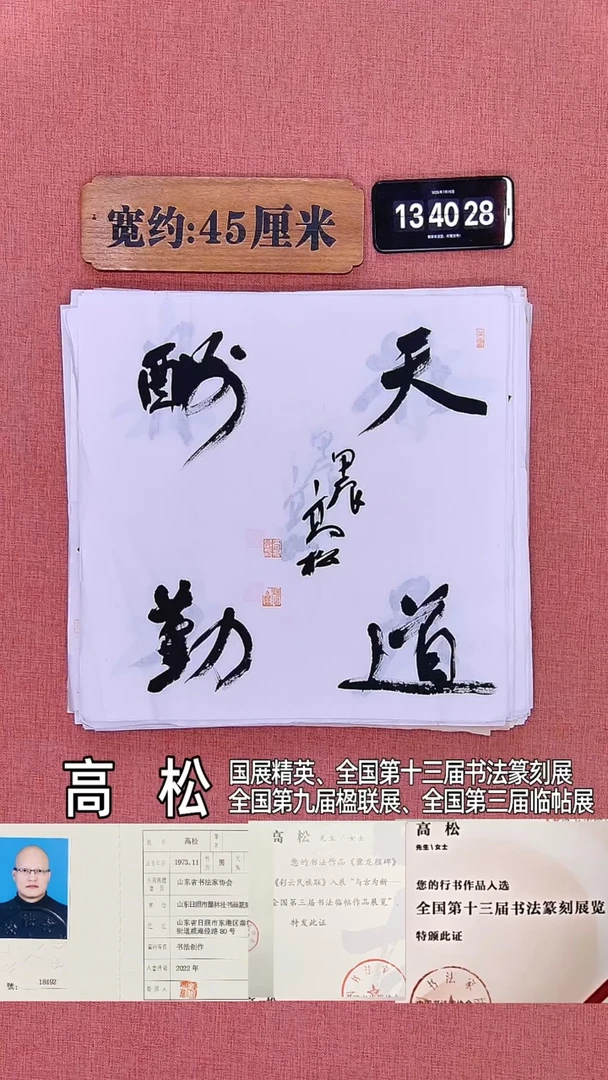 宽约:45厘米
13 40 28
天道
酬勤
甲辰
高松
高 松
国展精英、全国第十三届书法篆刻展
全国第九届楹联展、全国第三届临帖展
號: 18692
高松
1973.11
男
山东省书法家协会
山东省日照市东港区
80号
书法创作
2022年
高 松
先生\女士
您的书法作品
《彩云民族联》入展“与古为新
全国第三届书法临帖作品展览”,
特发此证
高 松
先生\女士
您的行书作品入选
全国第十三届书法篆刻展览
特颁此证